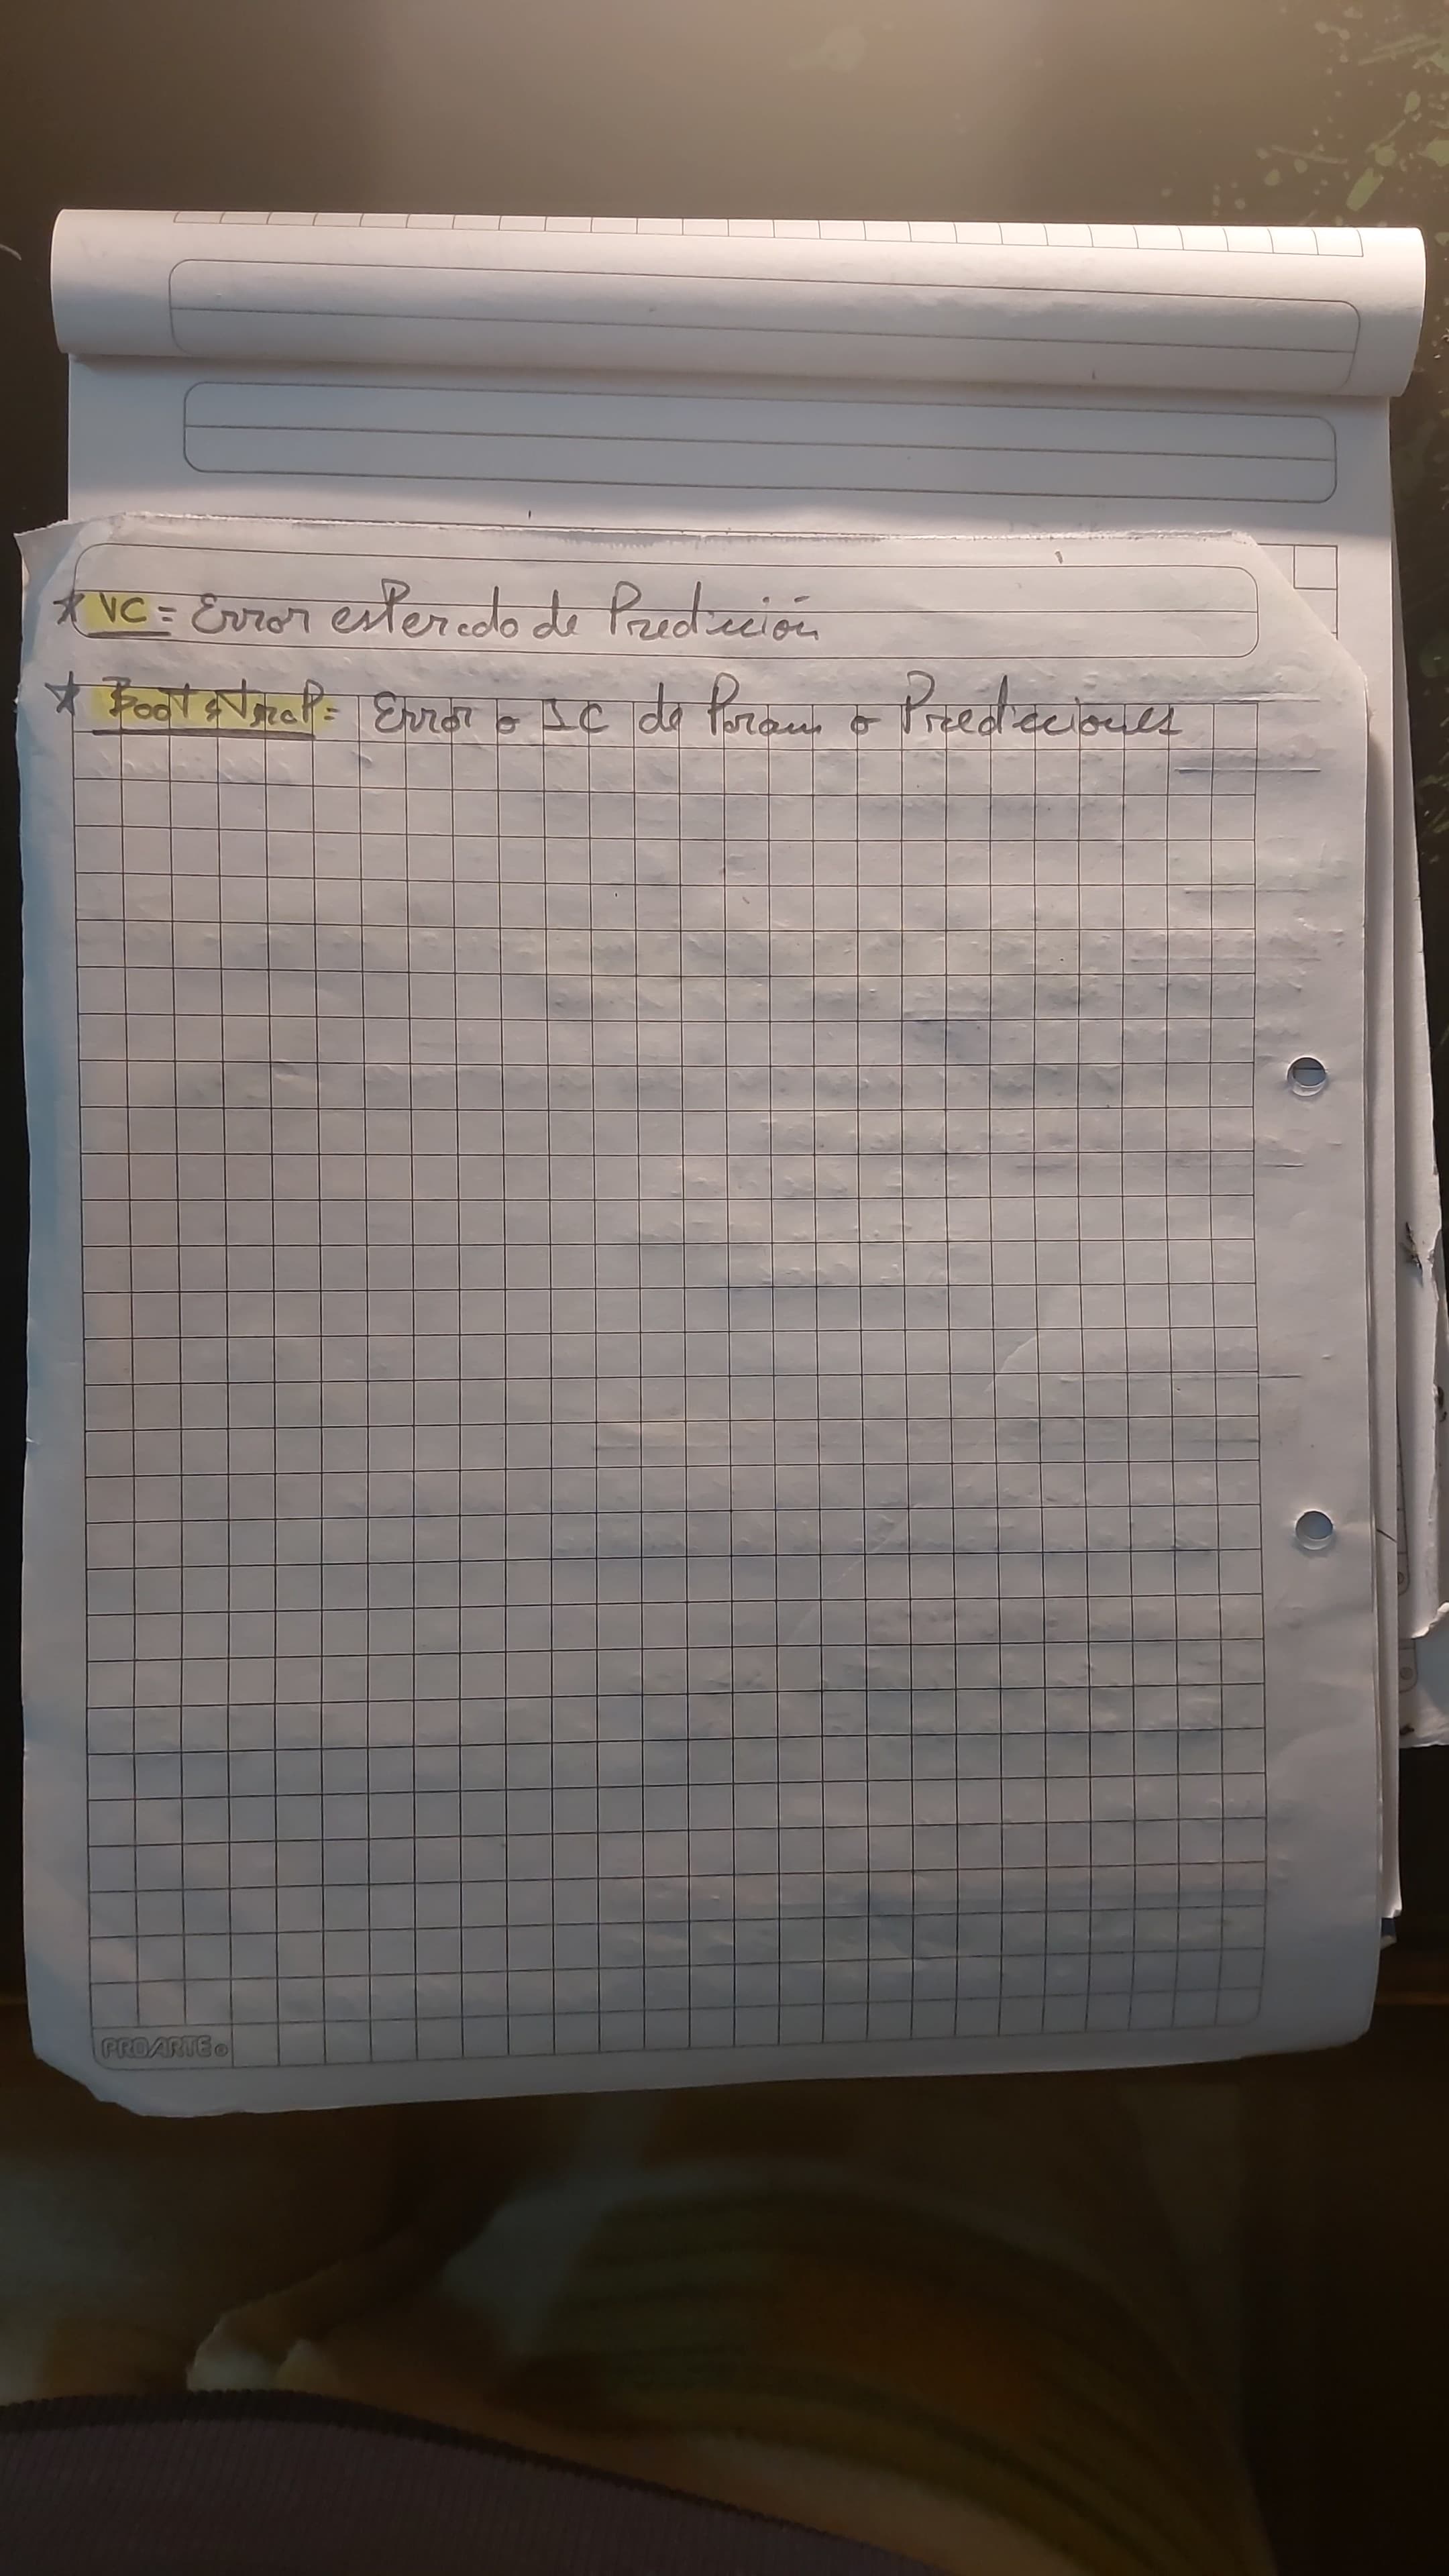 ★ VC = Error esperado de Predicción
★ Bootstrap = Error o IC de Param o Predicciones
PROARTE®